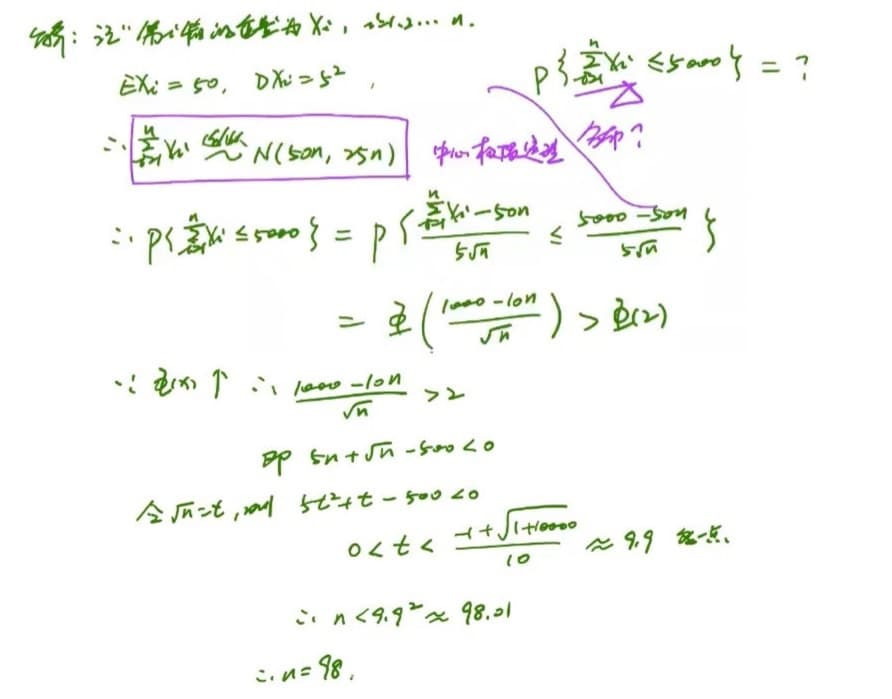 解：记"第i箱的重量为 Xi，i=1,2…n.
EXi = 50, DXi = 5²,
P{∑_{i=1}^{n} Xi ≤5000} = ?
∴ ∑_{i=1}^{n} Xi ~ N(50n, 25n) 中心极限定理 分布?
∴ P{∑_{i=1}^{n} Xi ≤ 5000} = P{(∑_{i=1}^{n} Xi - 50n)/(5√n) ≤ (5000 - 50n)/(5√n)}
= Φ((1000 - 10n)/√n) > Φ(2)
∵ Φ(x)↑ ∴ (1000 - 10n)/√n > 2
即 5n + √n - 500 < 0
令√n = t, 则 5t² + t - 500 < 0
0 < t < (-1 + √(1+10000))/10 ≈ 9.9 一点.
∴ n < 9.9² ≈ 98.01
∴ n = 98.